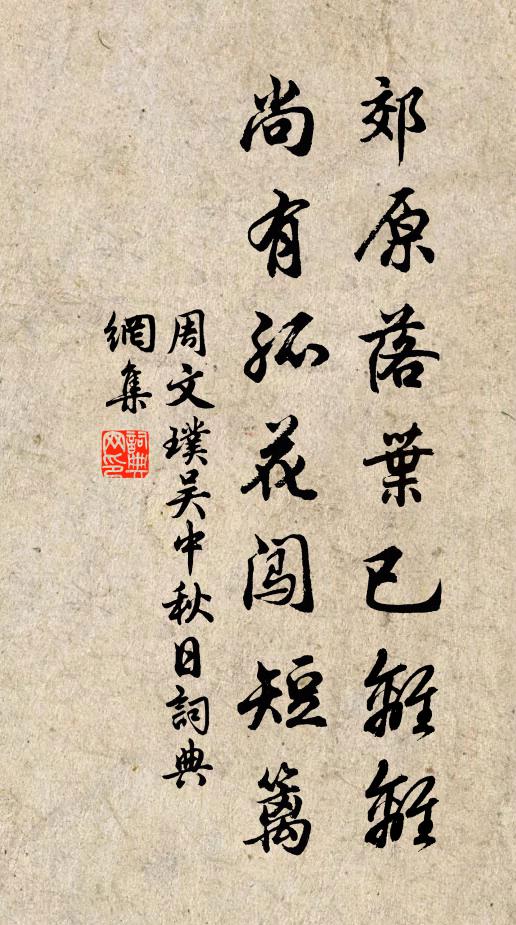 郊原落葉已離離
尚有孤花闯短篱
周文璞吴中秋日詞典
網集
詞典
网印